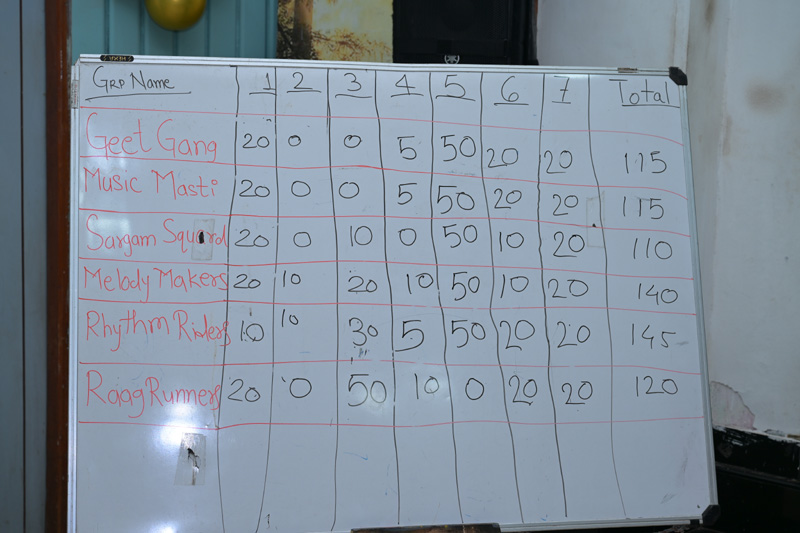 GRP Name 1 2 3 4 5 6 7 Total
Geet Gang 20 0 0 5 50 20 20 115
Music Masti 20 0 0 5 50 20 20 115
Sargam Squard 20 0 10 0 50 10 20 110
Melody Makers 20 10 20 10 50 10 20 140
Rhythm Riders 10 10 30 5 50 20 20 145
Raag Runners 20 0 50 10 0 20 20 120